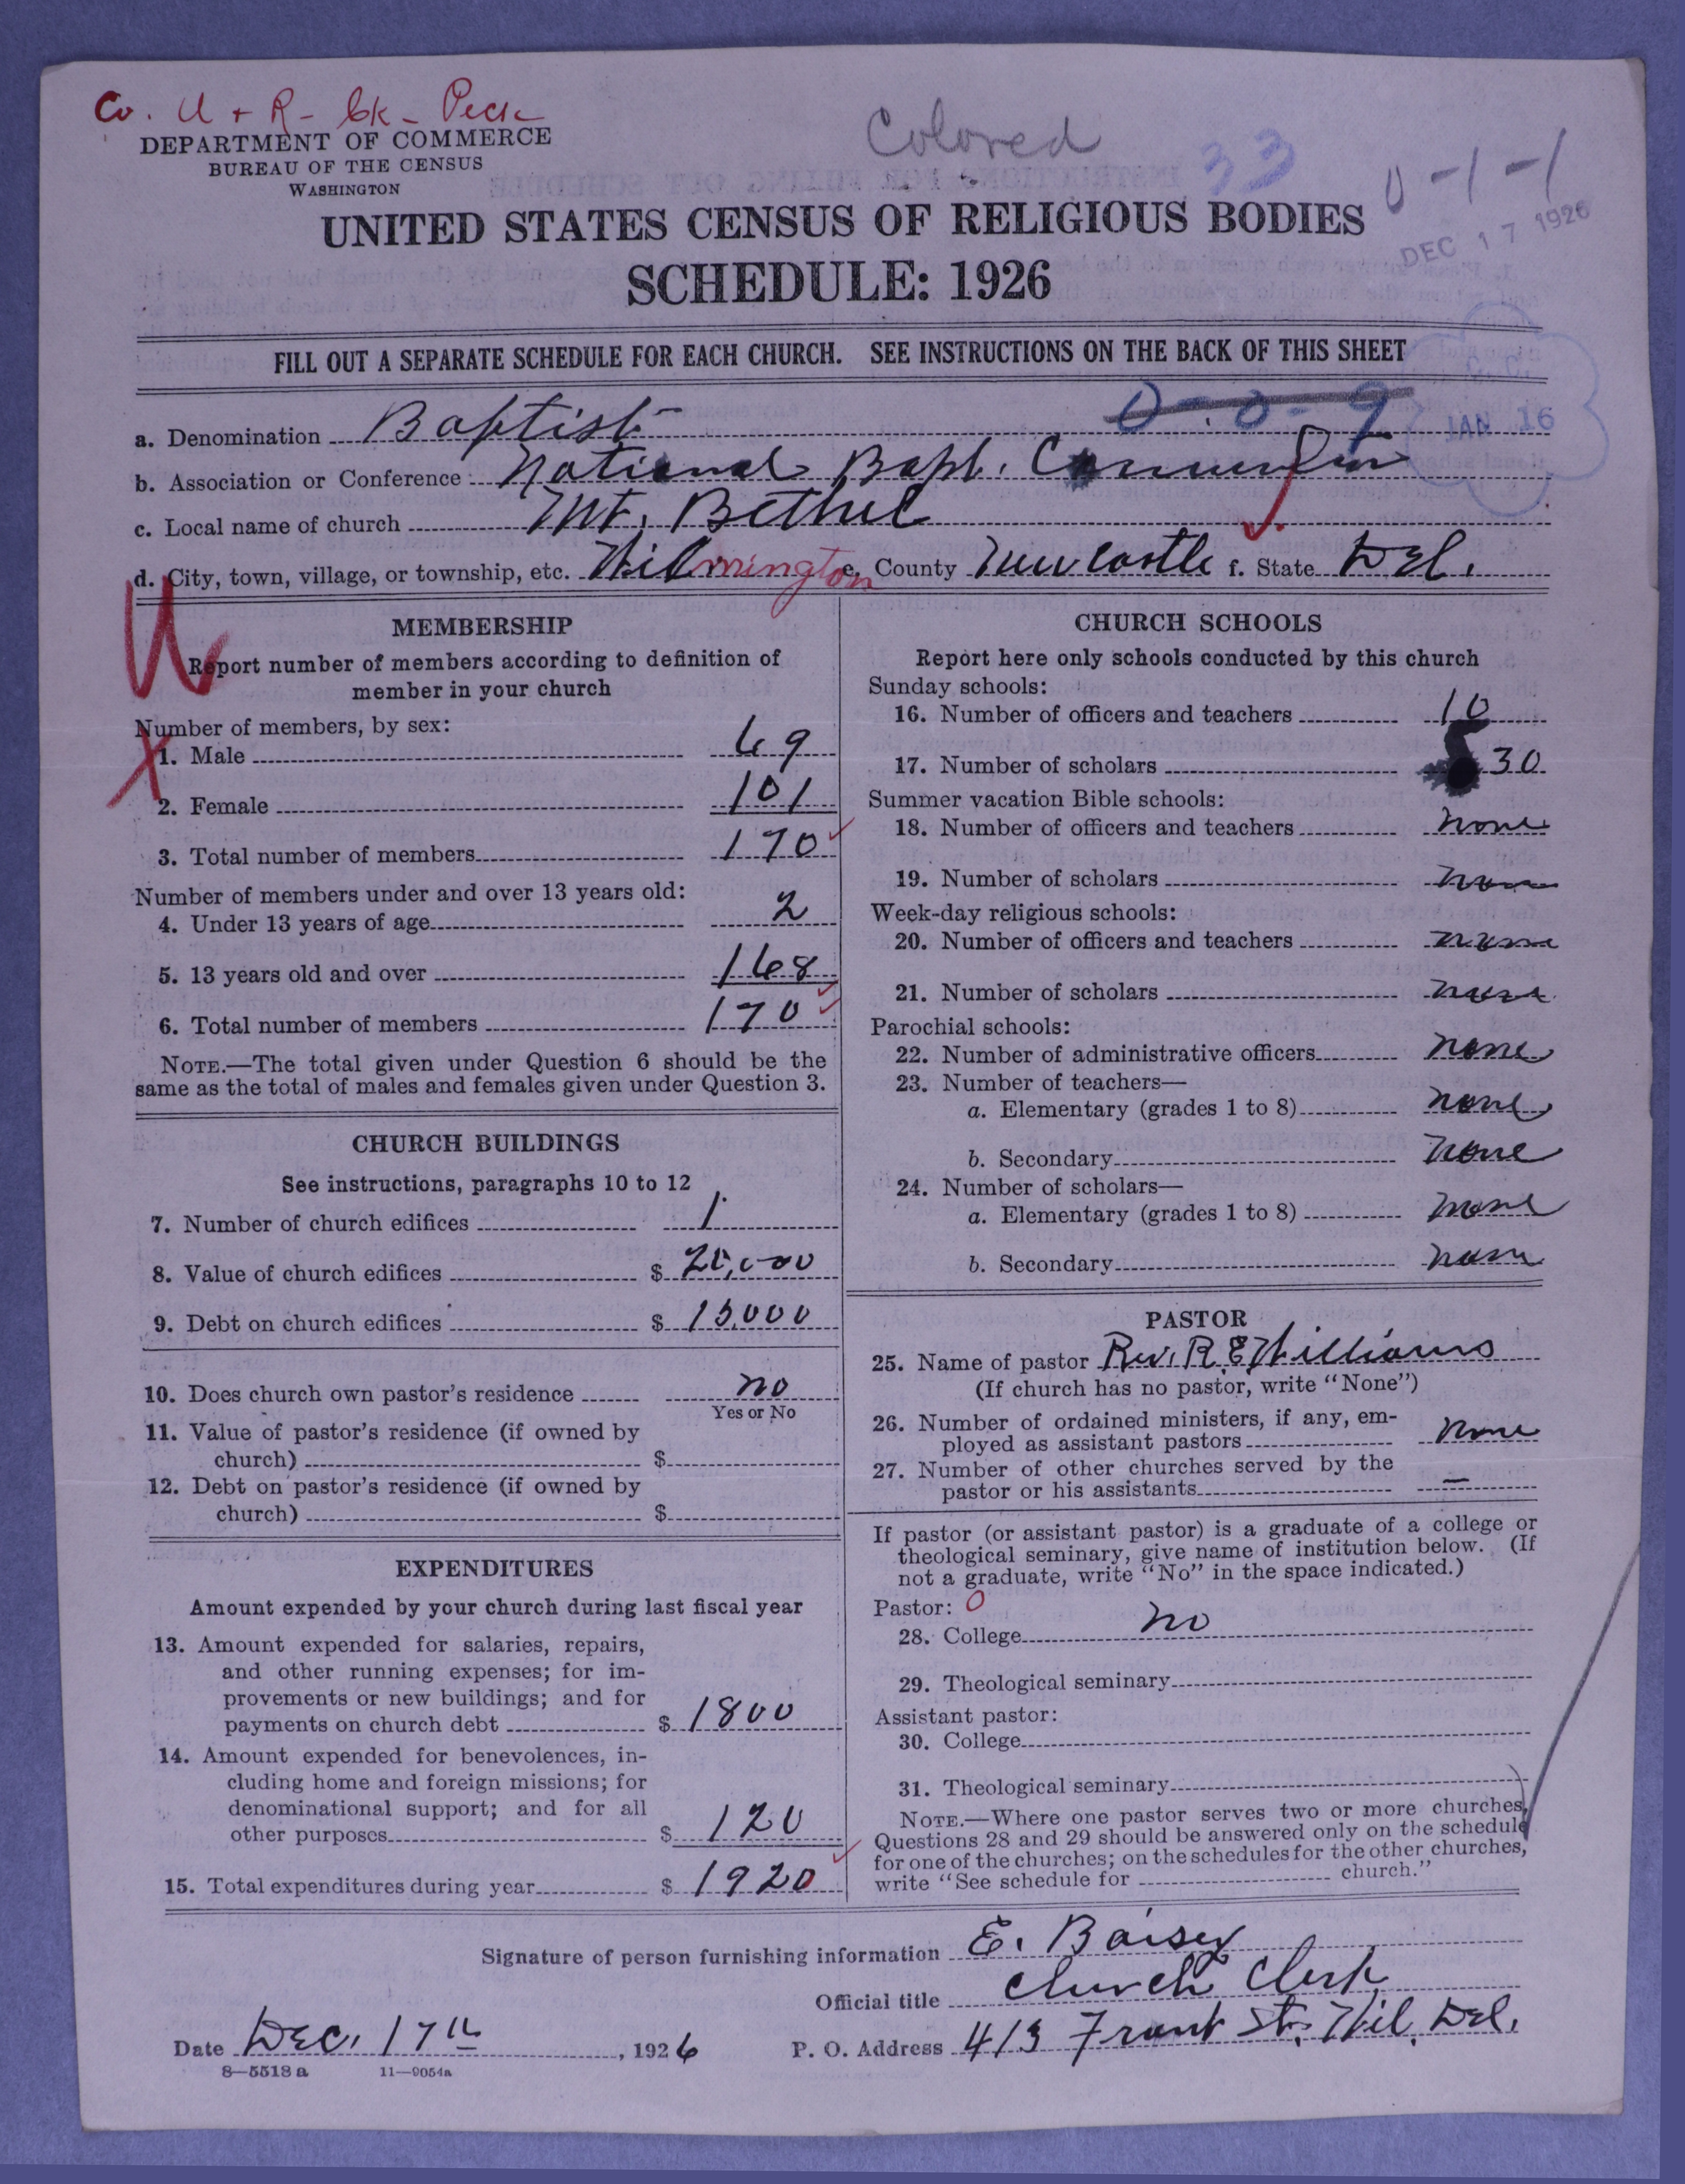 Co. U + R - Ck - Peck
Colored
33
0-1-1
DEPARTMENT OF COMMERCE
BUREAU OF THE CENSUS
WASHINGTON
DEC 17 1926
UNITED STATES CENSUS OF RELIGIOUS BODIES
SCHEDULE: 1926
FILL OUT A SEPARATE SCHEDULE FOR EACH CHURCH. SEE INSTRUCTIONS ON THE BACK OF THIS SHEET
0-0-9
JAN 16
a. Denomination Baptist
b. Association or Conference National Bapt. Convention
c. Local name of church Mt. Bethel
d. City, town, village, or township, etc. Wilmington e. County Newcastle f. State Del.
U
MEMBERSHIP
Report number of members according to definition of
member in your church
Number of members, by sex:
X
1. Male 69
2. Female 101
3. Total number of members 170
Number of members under and over 13 years old:
4. Under 13 years of age 2
5. 13 years old and over 168
6. Total number of members 170
NOTE.—The total given under Question 6 should be the
same as the total of males and females given under Question 3.
CHURCH BUILDINGS
See instructions, paragraphs 10 to 12
7. Number of church edifices 1
8. Value of church edifices $ 20,000
9. Debt on church edifices $ 15,000
10. Does church own pastor's residence no
Yes or No
11. Value of pastor's residence (if owned by
church) $
12. Debt on pastor's residence (if owned by
church) $
EXPENDITURES
Amount expended by your church during last fiscal year
13. Amount expended for salaries, repairs,
and other running expenses; for im-
provements or new buildings; and for
payments on church debt $ 1800
14. Amount expended for benevolences, in-
cluding home and foreign missions; for
denominational support; and for all
other purposes $ 120
15. Total expenditures during year $ 1920
CHURCH SCHOOLS
Report here only schools conducted by this church
Sunday schools:
16. Number of officers and teachers 10
17. Number of scholars 30
Summer vacation Bible schools:
18. Number of officers and teachers none
19. Number of scholars none
Week-day religious schools:
20. Number of officers and teachers none
21. Number of scholars none
Parochial schools:
22. Number of administrative officers none
23. Number of teachers—
a. Elementary (grades 1 to 8) none
b. Secondary none
24. Number of scholars—
a. Elementary (grades 1 to 8) none
b. Secondary none
PASTOR
25. Name of pastor Rev. R. E. Williams
(If church has no pastor, write "None")
26. Number of ordained ministers, if any, em-
ployed as assistant pastors none
27. Number of other churches served by the
pastor or his assistants —
If pastor (or assistant pastor) is a graduate of a college or
theological seminary, give name of institution below. (If
not a graduate, write "No" in the space indicated.)
Pastor: 0
28. College no
29. Theological seminary
Assistant pastor:
30. College
31. Theological seminary
NOTE.—Where one pastor serves two or more churches,
Questions 28 and 29 should be answered only on the schedule
for one of the churches; on the schedules for the other churches,
write "See schedule for church."
Signature of person furnishing information E. Baisey
Official title Church Clerk
Date Dec. 17th, 1926 P. O. Address 413 Front St. Wil. Del.
8—5518 a 11—9054a